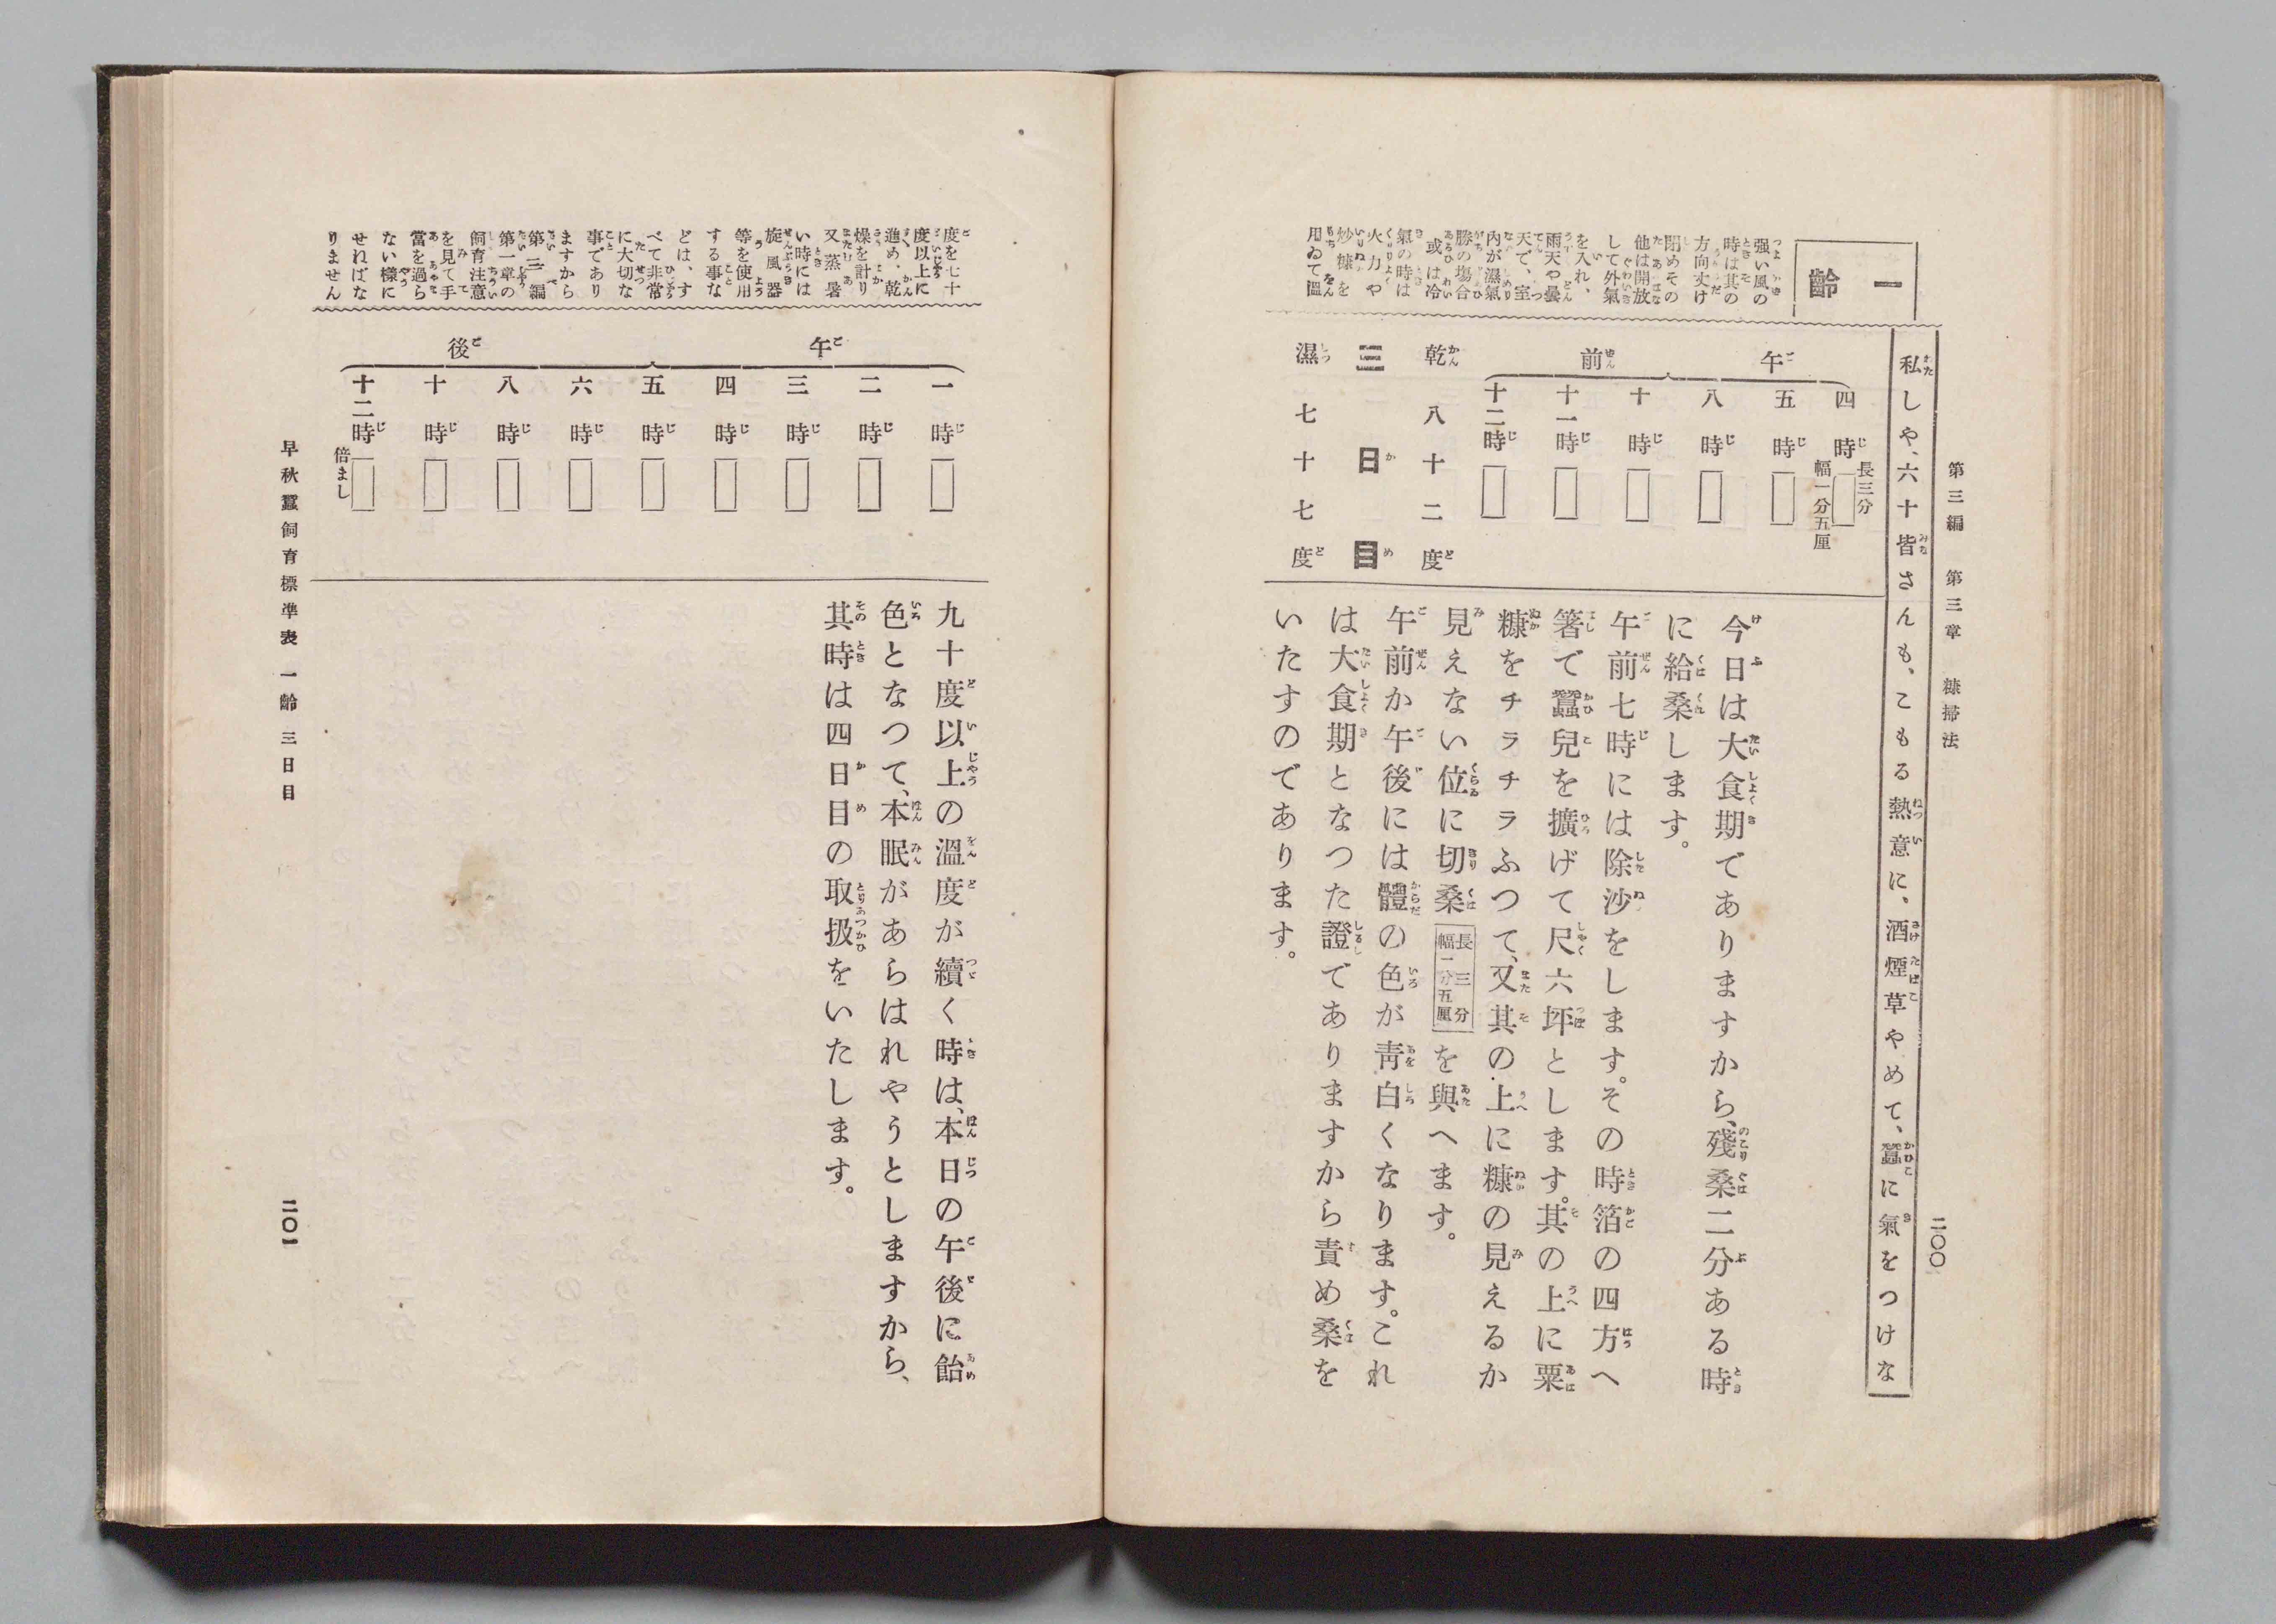 第三編 第三章 糠掃法
二〇〇
私しや、六十皆さんも、こもる熱意に、酒煙草やめて、蠶に氣をつけな
一齡
强い風の
時は其の
方向丈け
閉めその
他は開放
して外氣
を入れ、
雨天や曇
天で、室
內が濕氣
勝の塲合
或は冷
氣の時は
火力や
炒糠を
用ゐて溫
午前
四時 長三分 幅一分五厘
五時
八時
十時
十一時
十二時
乾 八十二度
三日目
濕 七十七度
今日は大食期でありますから、殘桑二分ある時
に給桑します。
午前七時には除沙をします。その時箔の四方へ
箸で蠶兒を擴げて尺六坪とします。其の上に粟
糠をチラチラふつて、又其の上に糠の見えるか
見えない位に切桑 長三分 幅一分五厘 を與へます。
午前か午後には體の色が靑白くなります。これ
は大食期となつた證でありますから責め桑を
いたすのであります。
度を七十
度以上に
進め、乾
燥を計り
又蒸暑
い時には
旋風器
等を使用
する事な
どは、す
べて非常
に大切な
事であり
ますから
第三編
第一章の
飼育注意
を見て手
當を過ら
ない樣に
せねばな
りません
午後
一時
二時
三時
四時
五時
六時
八時
十時
十二時 倍まし
九十度以上の溫度が續く時は、本日の午後に飴
色となつて、本眠があらはれやうとしますから、
其時は四日目の取扱をいたします。
早秋蠶飼育標準表 一齡 三日目
二〇一